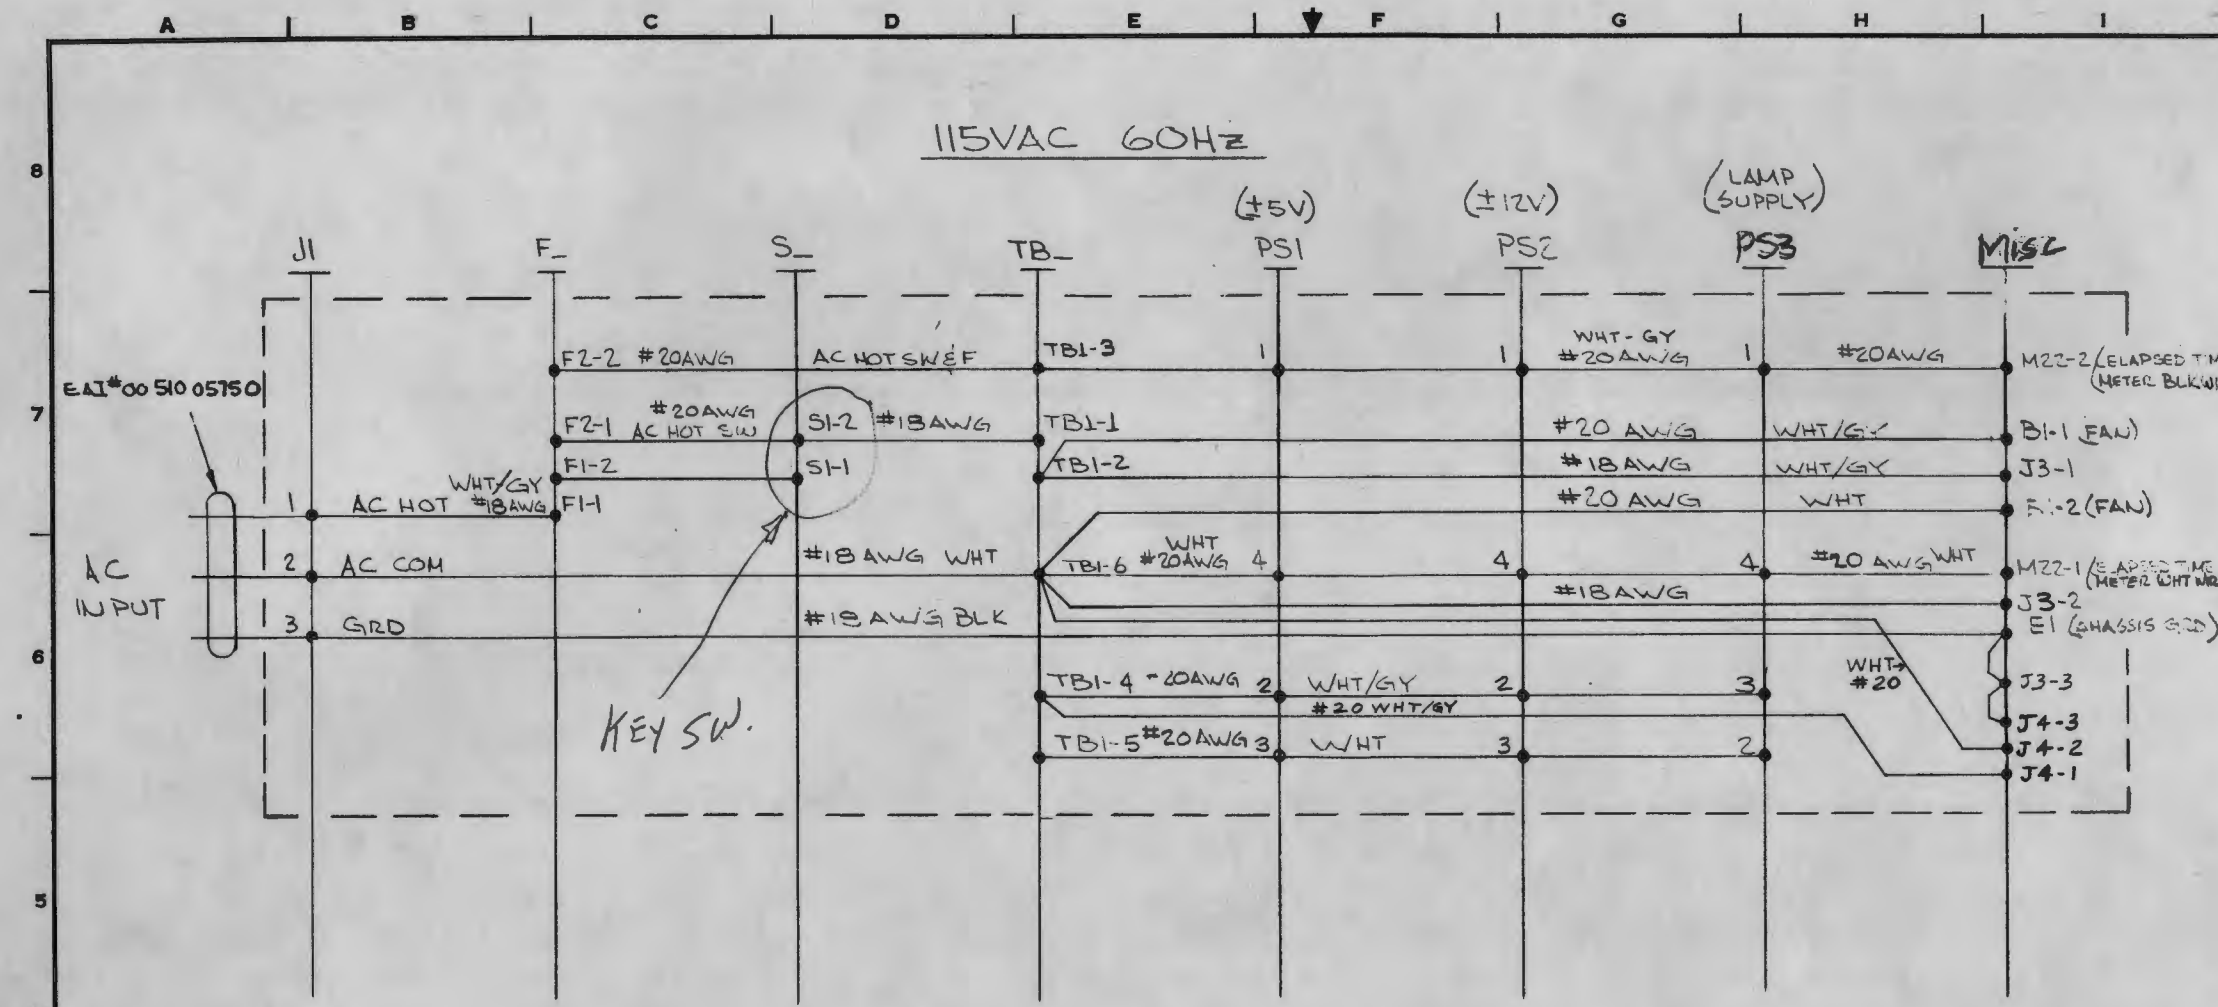 A B C D E F G H I
8
7
6
5
115VAC 60HZ
(±5V)
(±12V)
(LAMP
SUPPLY)
J1 F_ S_ TB_ PS1 PS2 PS3 MISC
F2-2 #20AWG AC HOT SW&F TB1-3 1 1
WHT-GY
#20AWG 1 #20AWG M22-2 (ELAPSED TIM
(METER BLK WR
EAI#00 510 05750
#20AWG
F2-1 AC HOT SW S1-2 #18AWG TB1-1 #20 AWG WHT/GY B1-1 (FAN)
F1-2 S1-1 TB1-2 #18AWG WHT/GY J3-1
WHT/GY
1 AC HOT #18AWG F1-1 #20 AWG WHT -2 (FAN)
AC
INPUT
2 AC COM #18 AWG WHT TB1-6
WHT
#20AWG 4 4 4 #20 AWG WHT M22-1 (ELAPSED TIME
(METER WHT WR
#18AWG J3-2
3 GRD #18 AWG BLK E1 (CHASSIS GRD)
WHT
#20
TB1-4 -20AWG 2 WHT/GY 2 3 J3-3
#20 WHT/GY
J4-3
TB1-5 #20AWG 3 WHT 3 2 J4-2
J4-1
KEY SW.